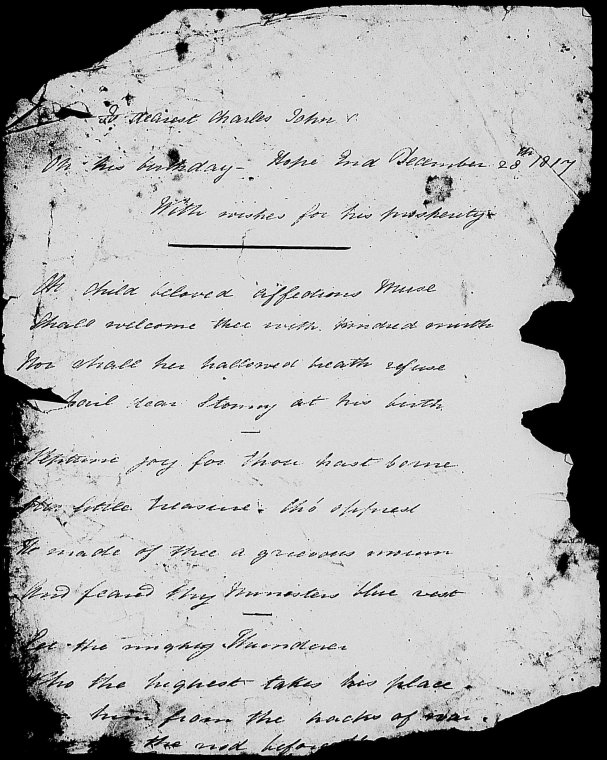 To dearest Charles John
On his birthday - Hope End December 28th 1817
With wishes for his prosperity
Oh child beloved affections Muse
Shall welcome thee with kindred mirth
Nor shall her hallowed breath refuse
hail dear Stormy at his birth
joy for thou hast borne
little treasure. tho' opprest
He made of thee a grievous mourn
And feared thy Ministers blue vest
Let the mighty Thunderer
Who the highest takes his place.
him from the of war.
the nod before